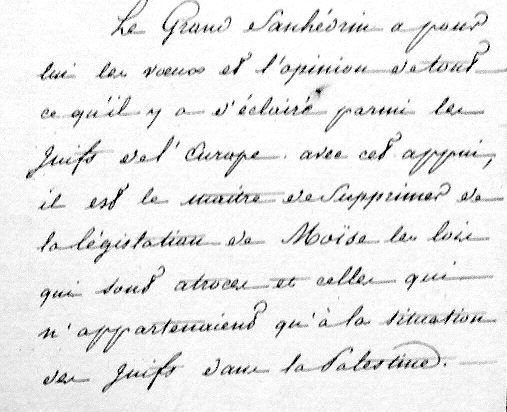 Le Grand Sanhédrin a pour
lui les vœux et l'opinion de tout
ce qu'il y a d'éclairé parmi les
Juifs de l'Europe. avec cet appui,
il est le maître de supprimer de
la législation de Moïse les lois
qui sont atroces et celles qui
n'appartenaient qu'à la situation
des Juifs dans la Palestine.